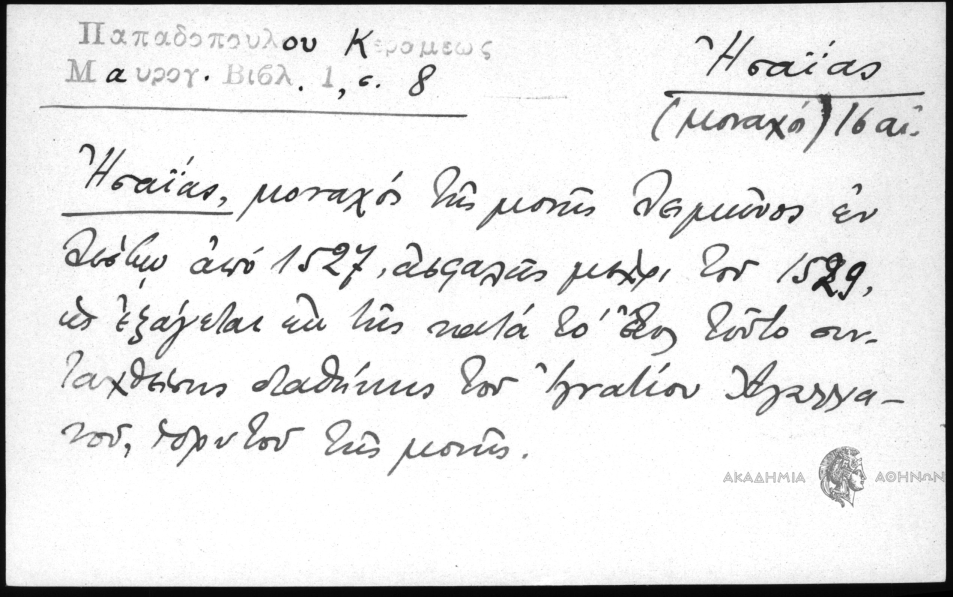 Παπαδοπουλου Κεραμεως
Μαυρογ. Βιβλ. 1, σ. 8
Ἠσαΐας
(μοναχός) 16 αἰ.
Ἠσαΐας, μοναχός τῆς μονῆς Λειμῶνος ἐν
Λέσβῳ ἀπό 1527, ἀσφαλῶς μέχρι τοῦ 1529,
ὡς ἐξάγεται ἐκ τῆς κατά τό ἔτος τοῦτο συν-
ταχθείσης διαθήκης τοῦ Ἰγνατίου Ἀγαλλια-
νοῦ, ἱδρυτοῦ τῆς μονῆς.
ΑΚΑΔΗΜΙΑ ΑΘΗΝΩΝ